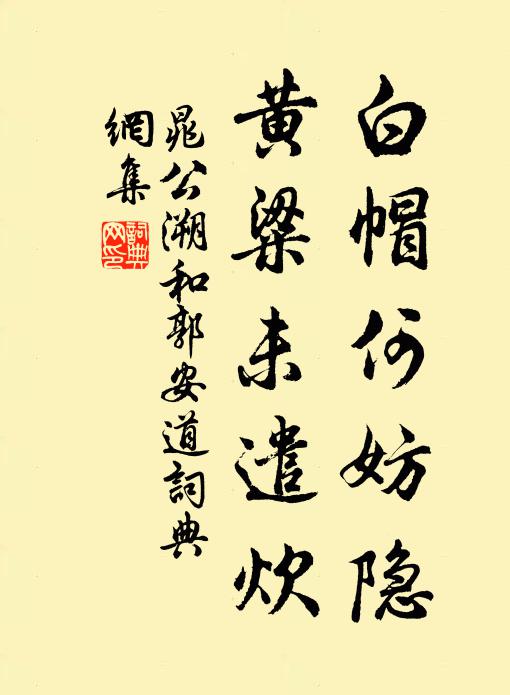 白帽何妨隐
黄粱未遣炊
晁公溯和郭安道詞典
網集
詞典
网印